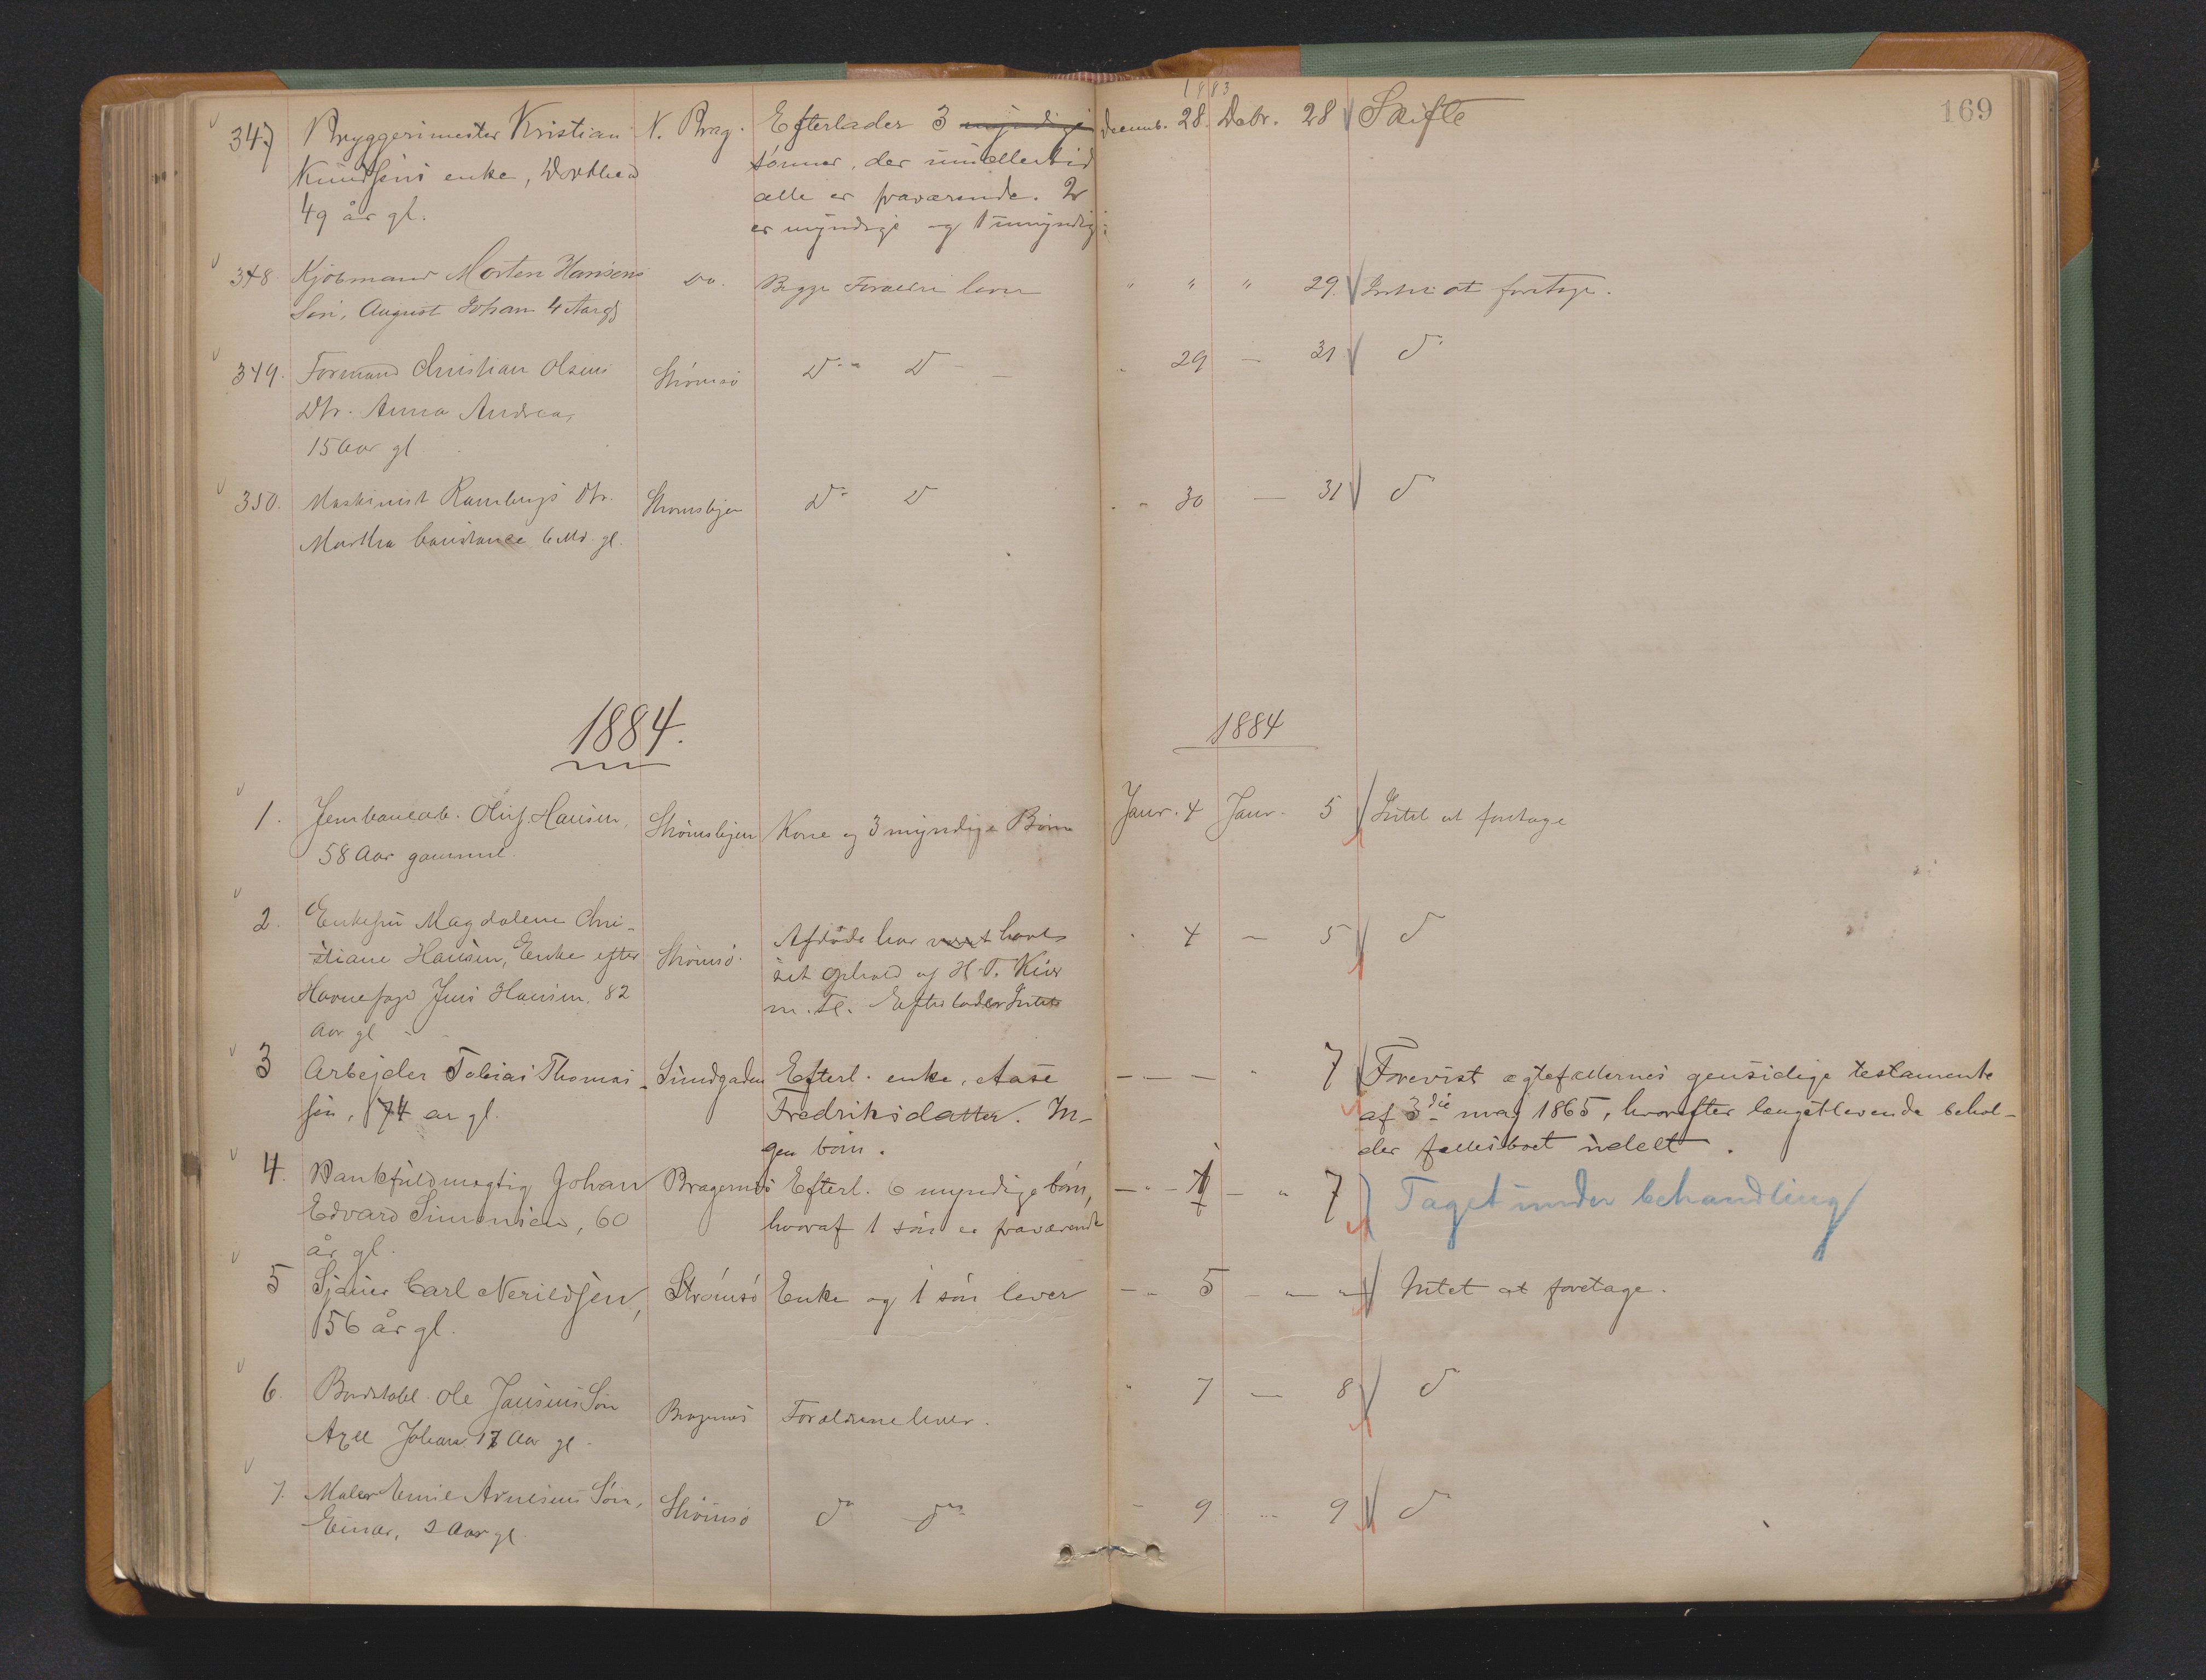 1883
169
347 Bryggerimester Kristian N. Brag. Efterlader 3 myndige Decemb. 28. Debr. 28 Skifte
Knudsens enke, Dorthea sönner, der imidlertid
49 år gl. alle er fraværende. 2
er myndige og 1 umyndig.
348. Kjöbmand Morten Hansens Do. Begge Forældre lever " " " 29. Intet at foretage.
Sön, August Johan 4 Aar gl
349. Formand Christian Olsens Strömsö Do Do " 29 — 31 do
Dtr. Anna Andrea,
15 Aar gl
350. Maskinist Rambergs Dtr. Strömsbyen Do Do " 30 — 31 do
Martha Constance 6 Md. gl.
1884. 1884
1. Jernbanearb. Oluf Hansen, Strömsbyen Kone og 3 myndige Börn Janr. 4 Janr. 5 Intet at foretage
58 Aar gammel.
2. Enkefru Magdalene Chri-
stiane Hansen, Enke efter Strömsö. Afdöde har havt " 4 — 5 do
Havnefogd Jens Hansen, 82 sit ophold af H. T. Kiær
Aar gl m. Fl. Efterlader Intet
3 Arbejder Tobias Thomas- Sundgaden Efterl. enke, Aase — — — " 7 Forevist ægtefællernes gensidige testamente
sen, 74 ar gl. Fredriksdatter. In- af 3die maj 1865, hvorefter længstlevende behol-
gen börn. der fællesboet udelt.
4. Bankfuldmægtig Johan Bragernes Efterl. 6 myndige börn, — " — — " 7 Taget under behandling
Edvard Simensen, 60 hvoraf 1 sön er fraværende
år gl.
5 Sjouer Carl Nerildsen, Strömsö Enke og 1 sön lever — " 5 — " — " Intet at foretage.
56 år gl.
6. Bordstabl. Ole Jansens Sön Bragernes Forældrene lever. " 7 — 8 do
Axel Johan 17 Aar gl.
7. Maler Emil Arnesens Sön, Strömsö do do — 9 — 9 do
Einar, 2 Aar gl.